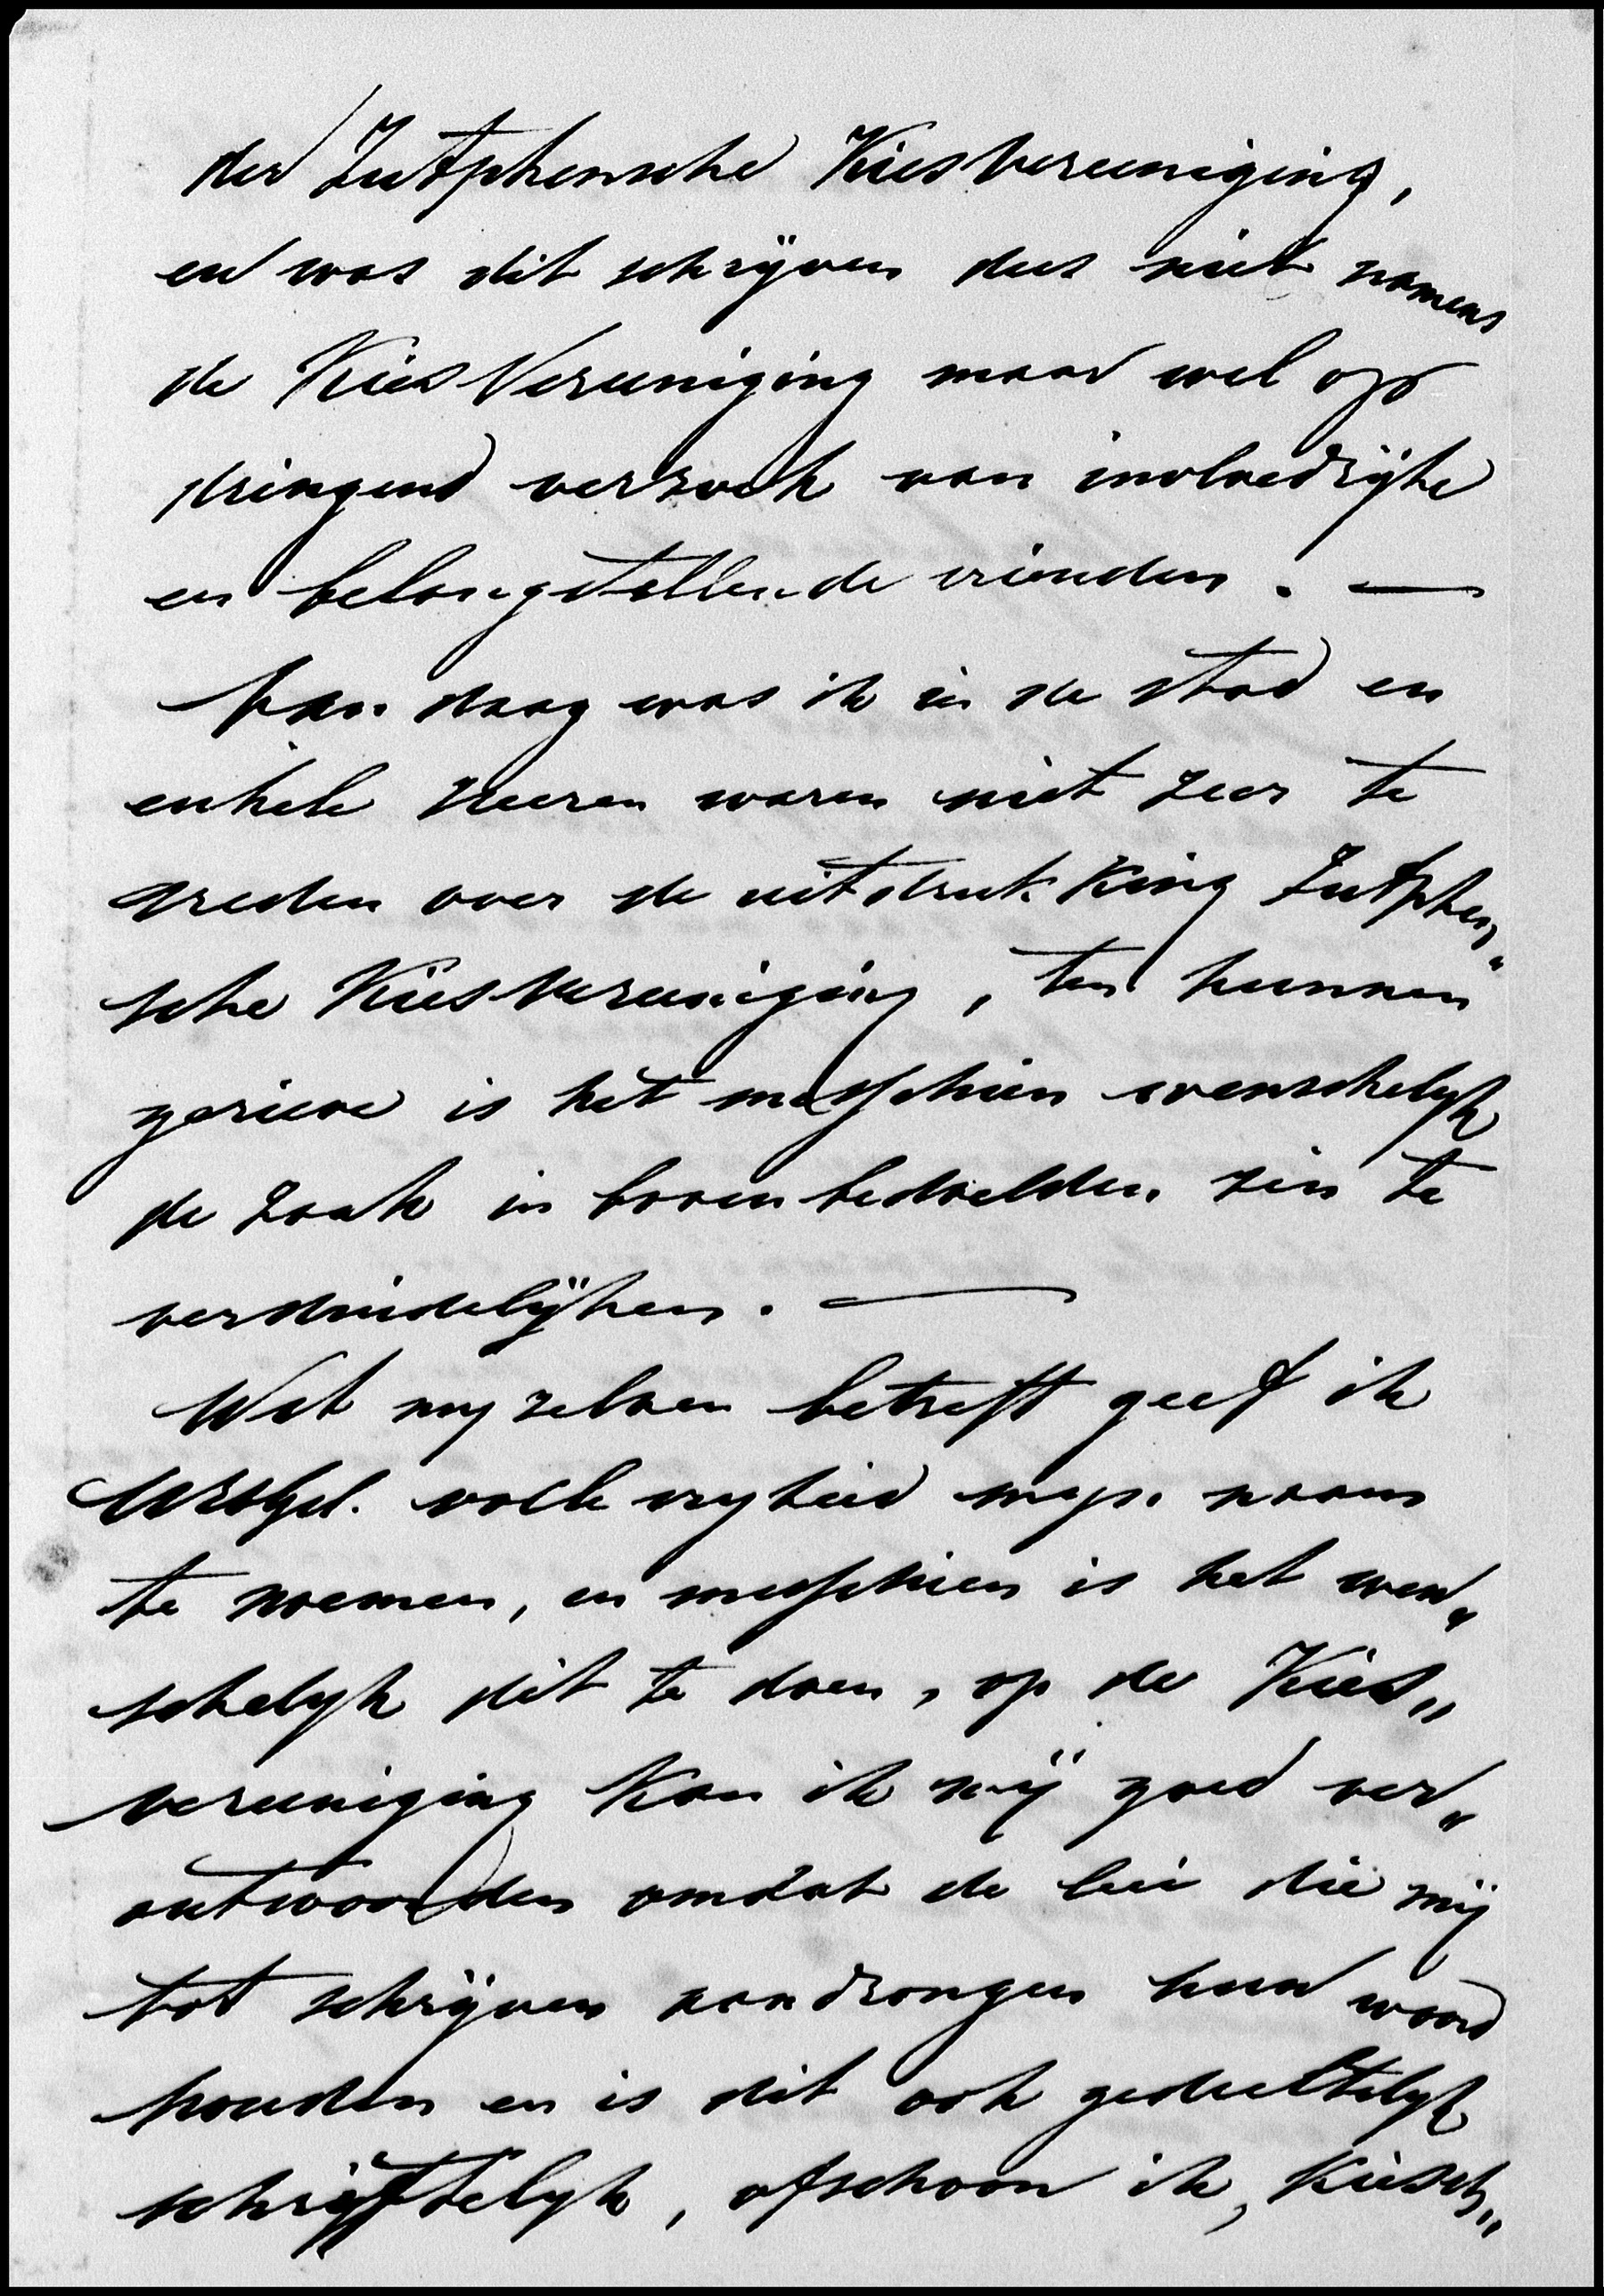 der Zutphensche Kiesvereeniging,
en was dit schrijven dus niet namens
de Kies Vereeniging maar wel op
dringend verzoek van invloedrijke
en belangstellende vrienden. —
Van daag was ik in de stad en
enkele Heeren waren niet zeer te
vreden over de uitdruk king Zutphen„
sche Kiesvereeniging, ten hunnen
gerieve is het misschien wenschelyk
de zaak in bovenbedoelden zin te
verduidelijken. —
Wat my zelven betreft geef ik
UWEdgel. volle vryheid myn naam
te noemen, en misschien is het wen„
schelyk dit te doen, op de Kies„
vereeniging kan ik mij goed ver„
antwoorden omdat de lui die mij
tot schrijven aandrongen hun woord
houden en is dit ook gedeeltelyk
schriftelyk, ofschoon ik, kiesch„